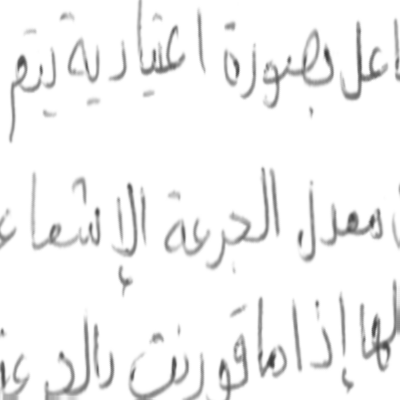 اعل بصورة اعتيادية ليتم
معدل الجرعة الإشعا
لها إذا ما قورنت بالجرعة